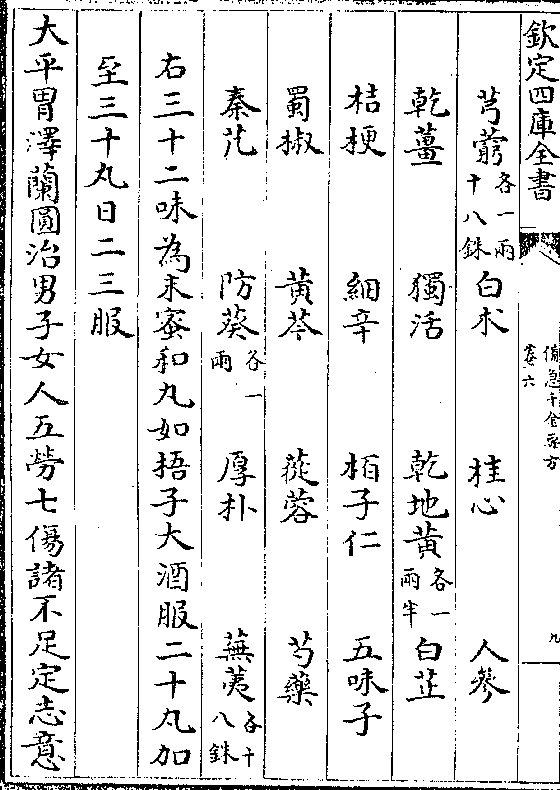 欽定四庫全書
備急千金要方
卷六
九
芎藭各一兩十八銖 白朮 桂心 人參
乾薑 獨活 乾地黃各一兩半 白芷
桔梗 細辛 栢子仁 五味子
蜀椒 黃芩 蓯蓉 芍藥
秦艽 防葵各一兩 厚朴 蕪荑各十八銖
右三十二味為末蜜和丸如梧子大酒服二十丸加
至三十丸日二三服
大平胃澤蘭圓治男子女人五勞七傷諸不足定志意